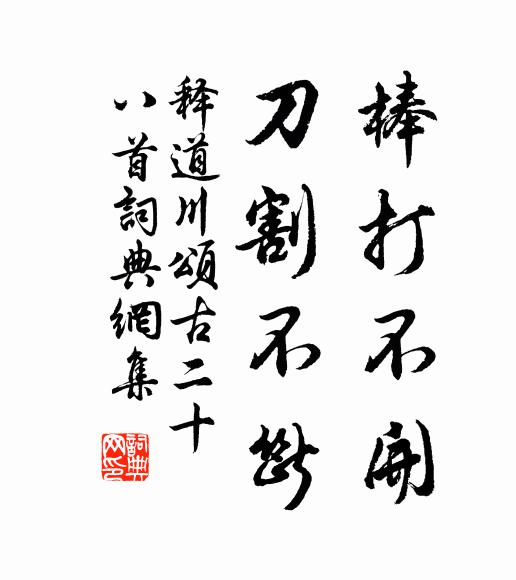 棒打不開
刀割不斷
释道川頌古二十
八首詞典網集
詞典网印